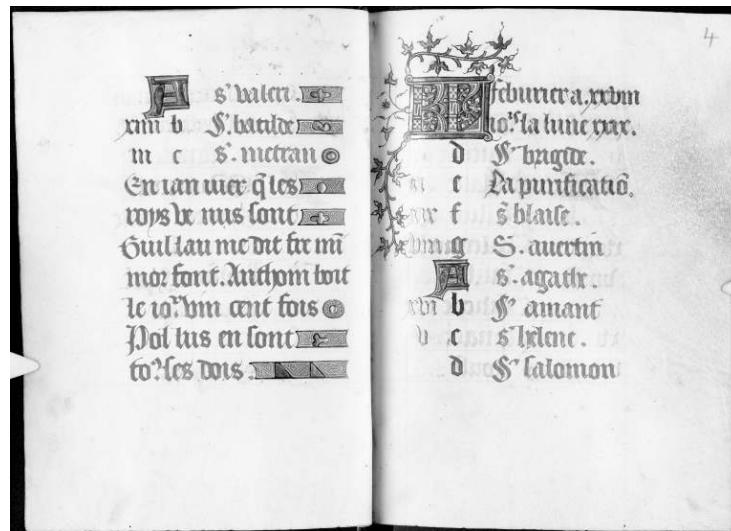 A sᵗ valeri.
xiiii b Sᵗ. batilde
iii c s. metran
En ian uier q̃ les
roys ve nus sont
Guil lau me dit fre mi
mor font. Anthoni bout
le ioʳ. vin cent fois
Pol lus en sont
toʳ. ses dois.
4
Feburier a. xxviii
ioʳˢ la lune xxix.
d Sᵗ brigide.
xi e La purificatiõ.
xix f s̃ blaise.
viii g S. auertin
A s. agathe.
xvi b Sᵗ amant
v c s helene.
d Sᵗ salomon